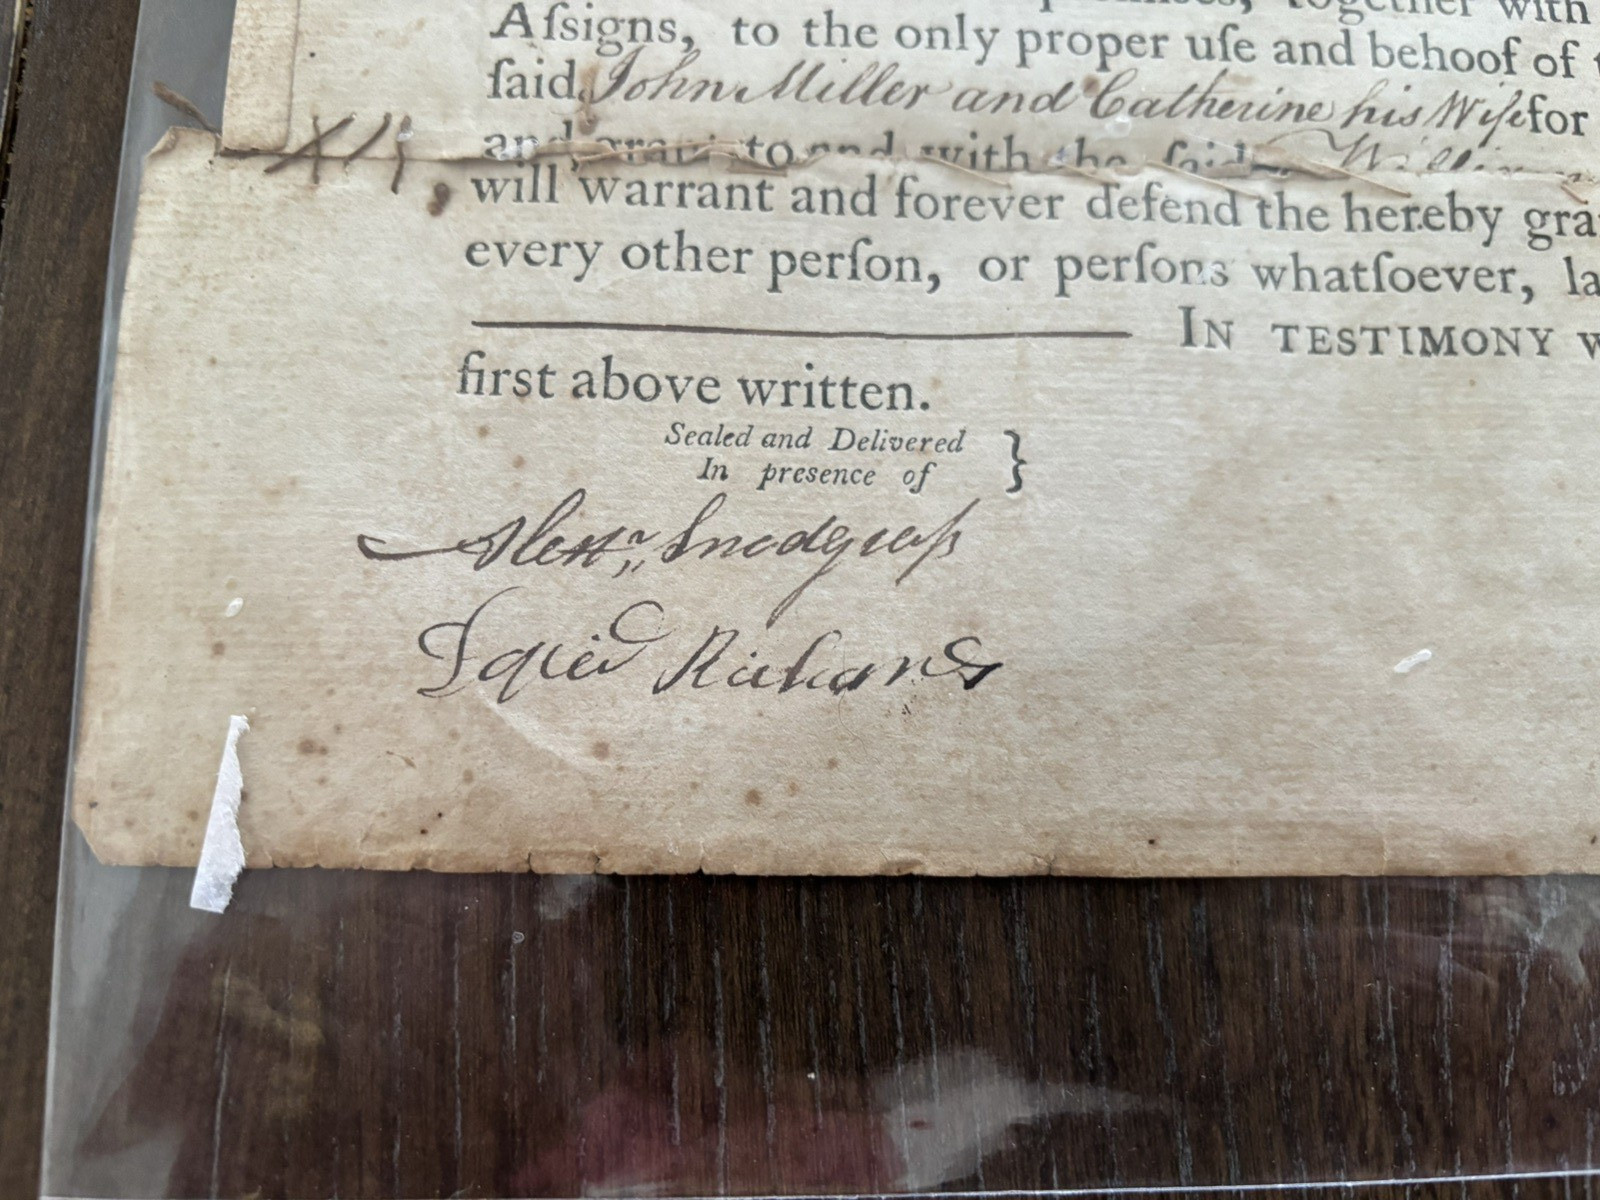 together with
Aſsigns, to the only proper uſe and behoof of
ſaid John Miller and Catherine his Wife for
and grant to and with the ſaid
will warrant and forever defend the hereby gra
every other perſon, or perſons whatſoever, la
IN TESTIMONY
first above written.
Sealed and Delivered
In presence of
Alexr. Snodgraſs
Richards